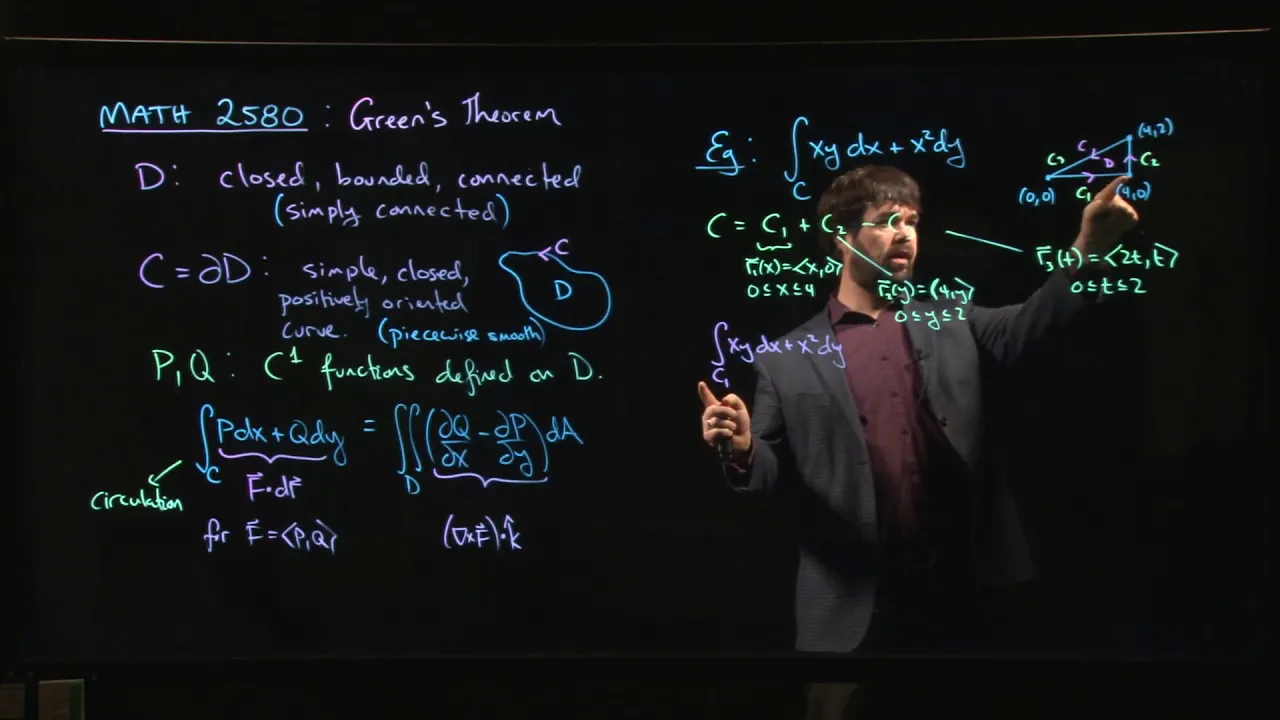 MATH 2580 : Green's Theorem
D: closed, bounded, connected
(simply connected)
C = ∂D: simple, closed,
positively oriented
curve. (piecewise smooth)
C
D
P, Q: C¹ functions defined on D.
∫_C Pdx + Qdy = ∬_D (∂Q/∂x − ∂P/∂y) dA
Circulation
F⃗·dr⃗
for F⃗ = ⟨P, Q⟩
(∇×F⃗)·k̂
Eg: ∫_C xy dx + x²dy
(4,2)
C
D
C₂
(0,0)
C₁
(4,0)
C = C₁ + C₂ − C
r⃗₁(x) = ⟨x, 0⟩
0 ≤ x ≤ 4
r⃗₂(y) = ⟨4, y⟩
0 ≤ y ≤ 2
r⃗₃(t) = ⟨2t, t⟩
0 ≤ t ≤ 2
∫_C₁ xy dx + x²dy